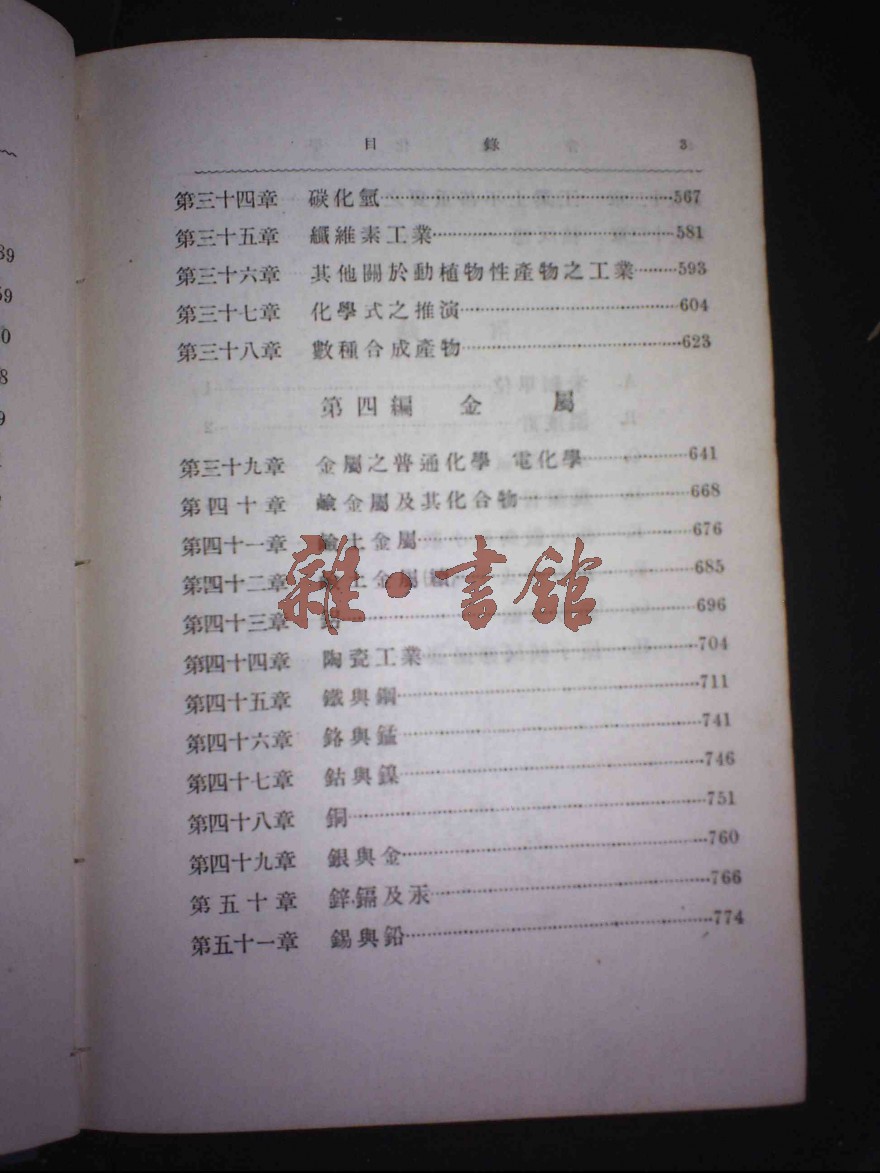 目錄 3
第三十四章 碳化氫 567
第三十五章 纖維素工業 581
第三十六章 其他關於動植物性產物之工業 593
第三十七章 化學式之推演 604
第三十八章 數種合成產物 623
第四編 金屬
第三十九章 金屬之普通化學 電化學 641
第四十章 鹼金屬及其化合物 668
第四十一章 鹼土金屬 676
第四十二章 土金屬(續) 685
第四十三章 696
第四十四章 陶瓷工業 704
第四十五章 鐵與鋼 711
第四十六章 鉻與錳 741
第四十七章 鈷與鎳 746
第四十八章 銅 751
第四十九章 銀與金 760
第五十章 鋅鎘及汞 766
第五十一章 錫與鉛 774
雜·書館